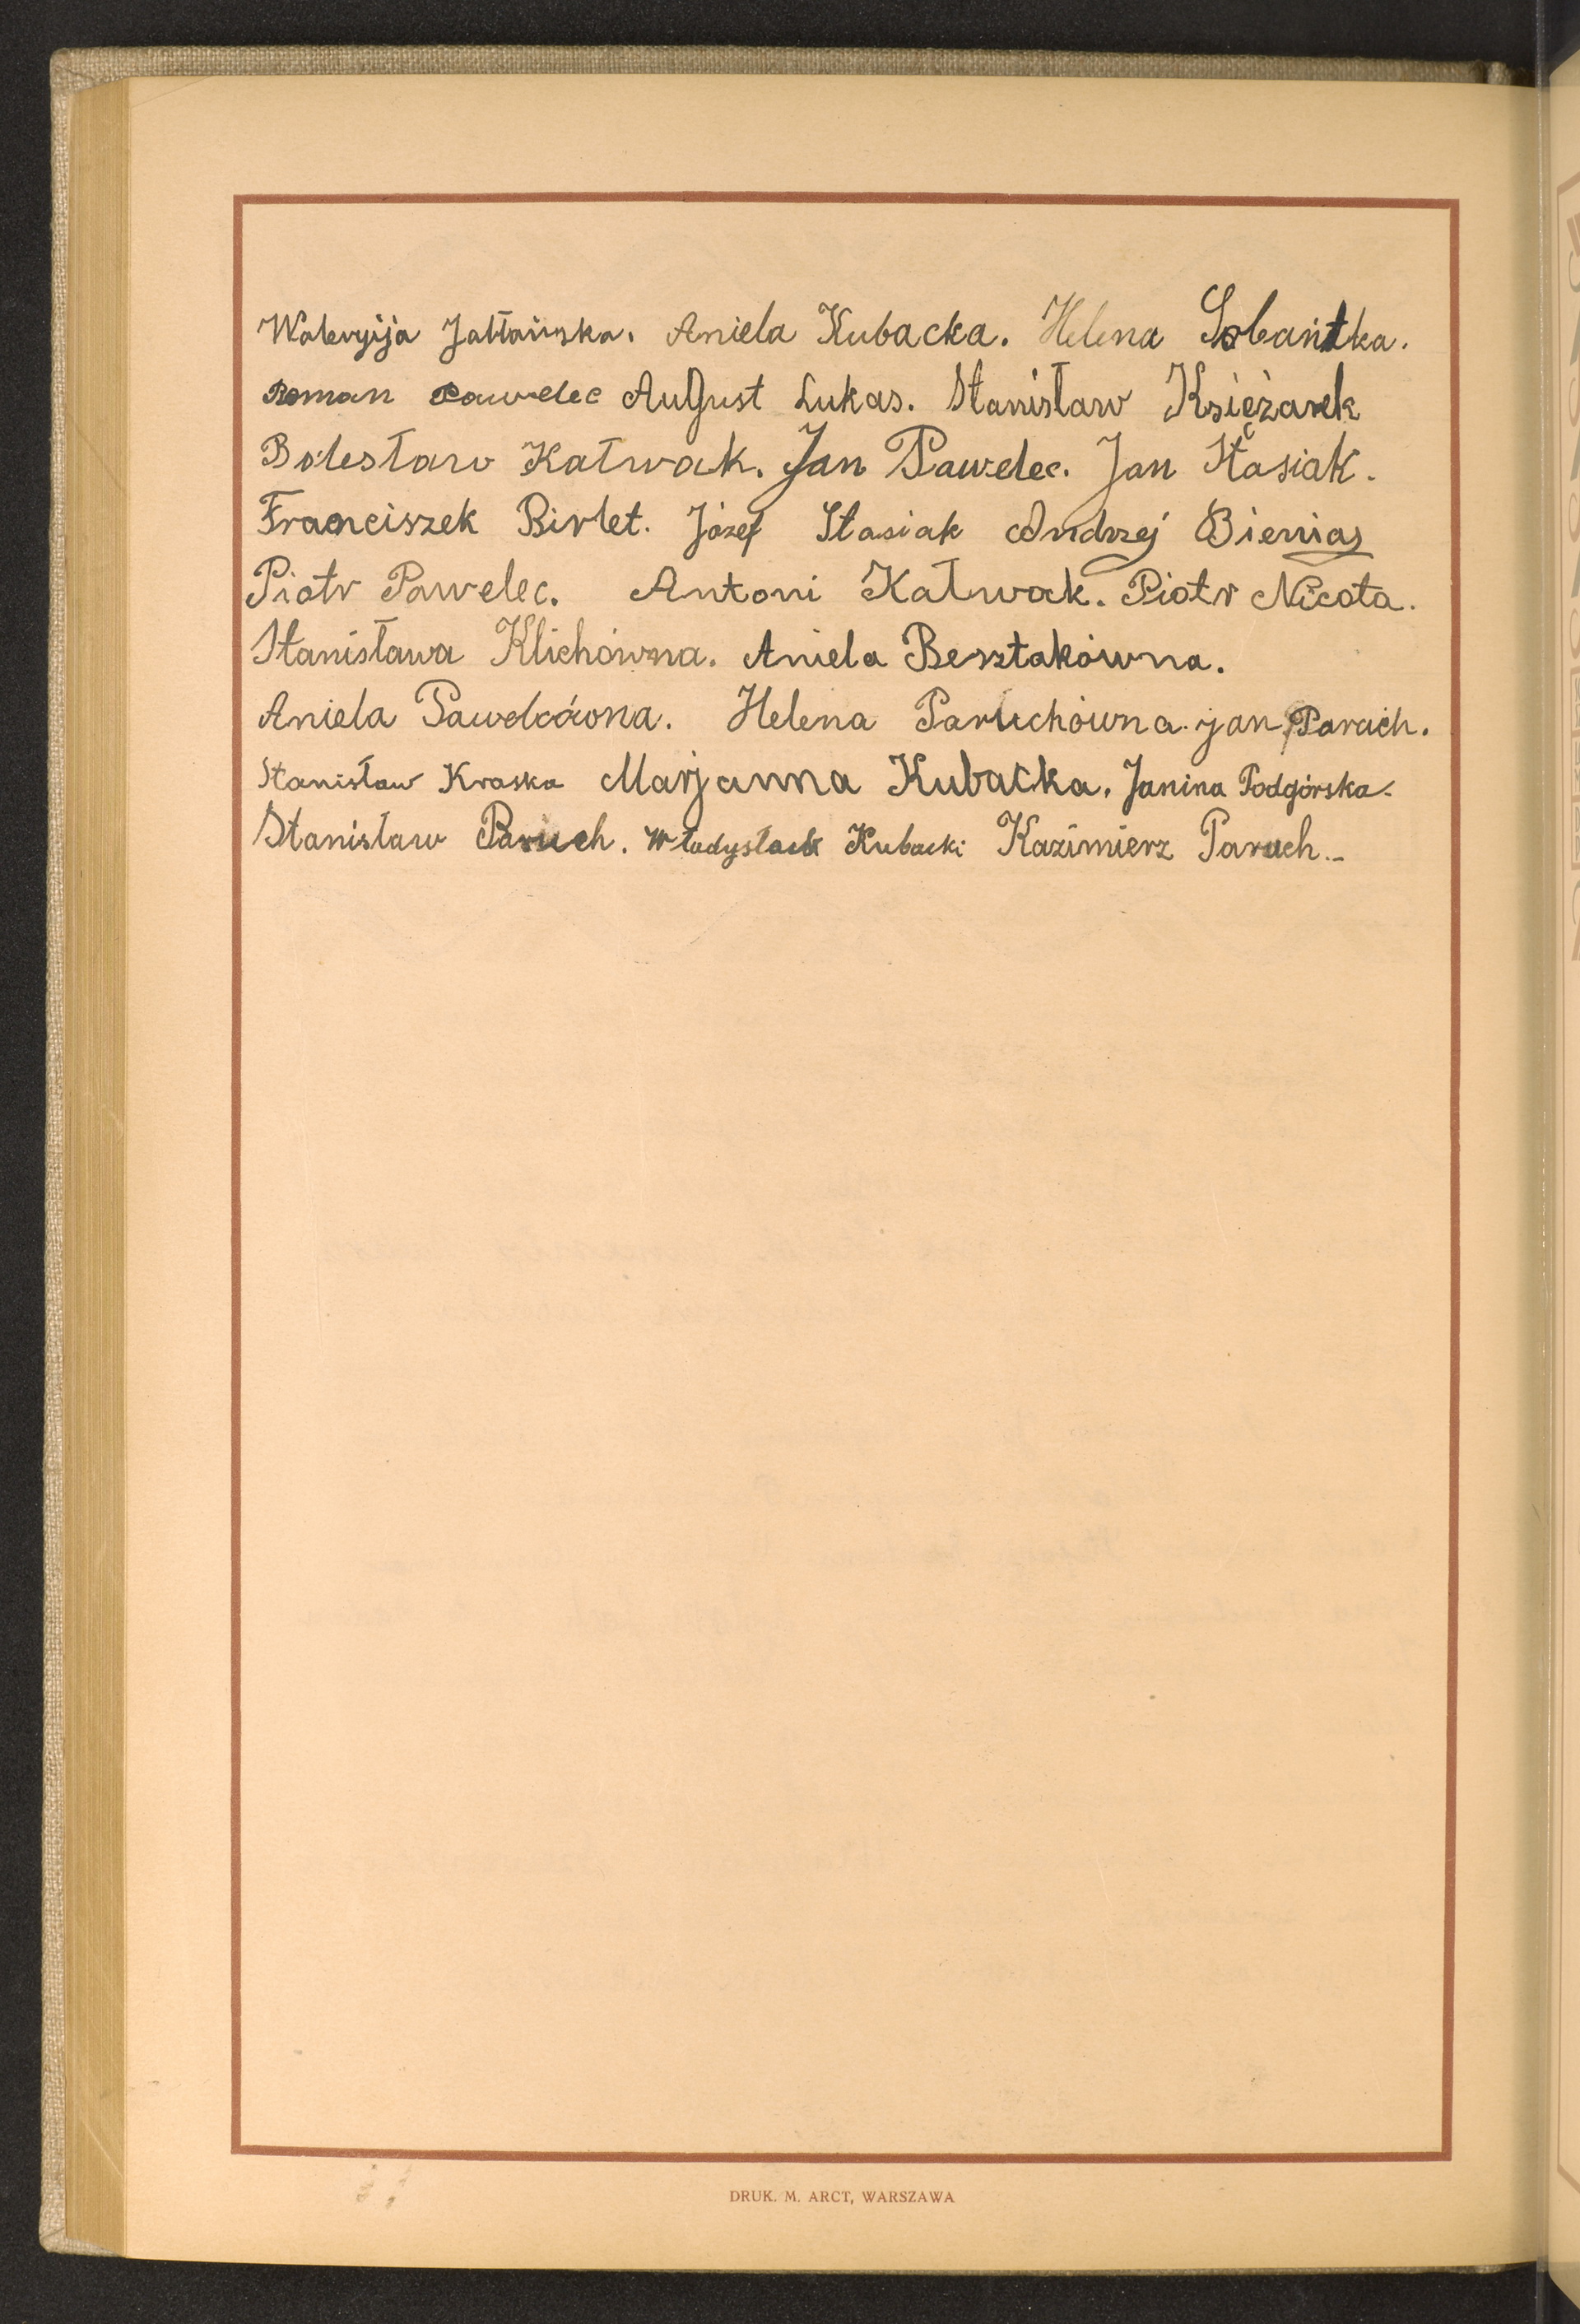 Waleryja Jattańska. Aniela Kubacka. Helena Sobańtka.
Roman Pawelec August Lukas. Stanisław Księżarek
Bolesław Kałwak. Jan Pawelec. Jan Stasiak.
Franciszek Birlet. Józef Stasiak Andrzej Bienias
Piotr Pawelec. Antoni Kałwak. Piotr Nicota.
Stanisława Klichówna. Aniela Besztakówna.
Aniela Pawelcówna. Helena Paruchówna. jan Paruch.
Stanisław Kraska Marjanna Kubacka. Janina Podgórska.
Stanisław Paruch. Władysław Kubacki Kazimierz Paruch.
DRUK. M. ARCT, WARSZAWA